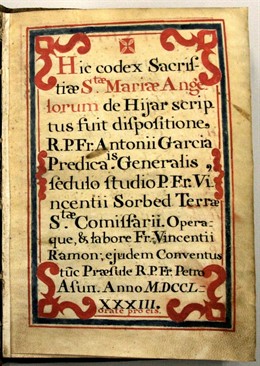 Hic codex Sacris-
tiæ S.tæ Mariæ Ange-
lorum de Hijar scrip
tus fuit dispositione.
R.P.Fr. Antonii Garcia
Predica.is Generalis,
sedulo studio P.Fr. Vi-
ncentii Sorbed Terræ
S.tæ Comissarii. Opera-
que, & labore Fr. Vincentii
Ramon; ejudem Conventus
tũc Præsule R.P.Fr. Petro
Asun. Anno MDCCL-
XXXIII.
orate pro eis.